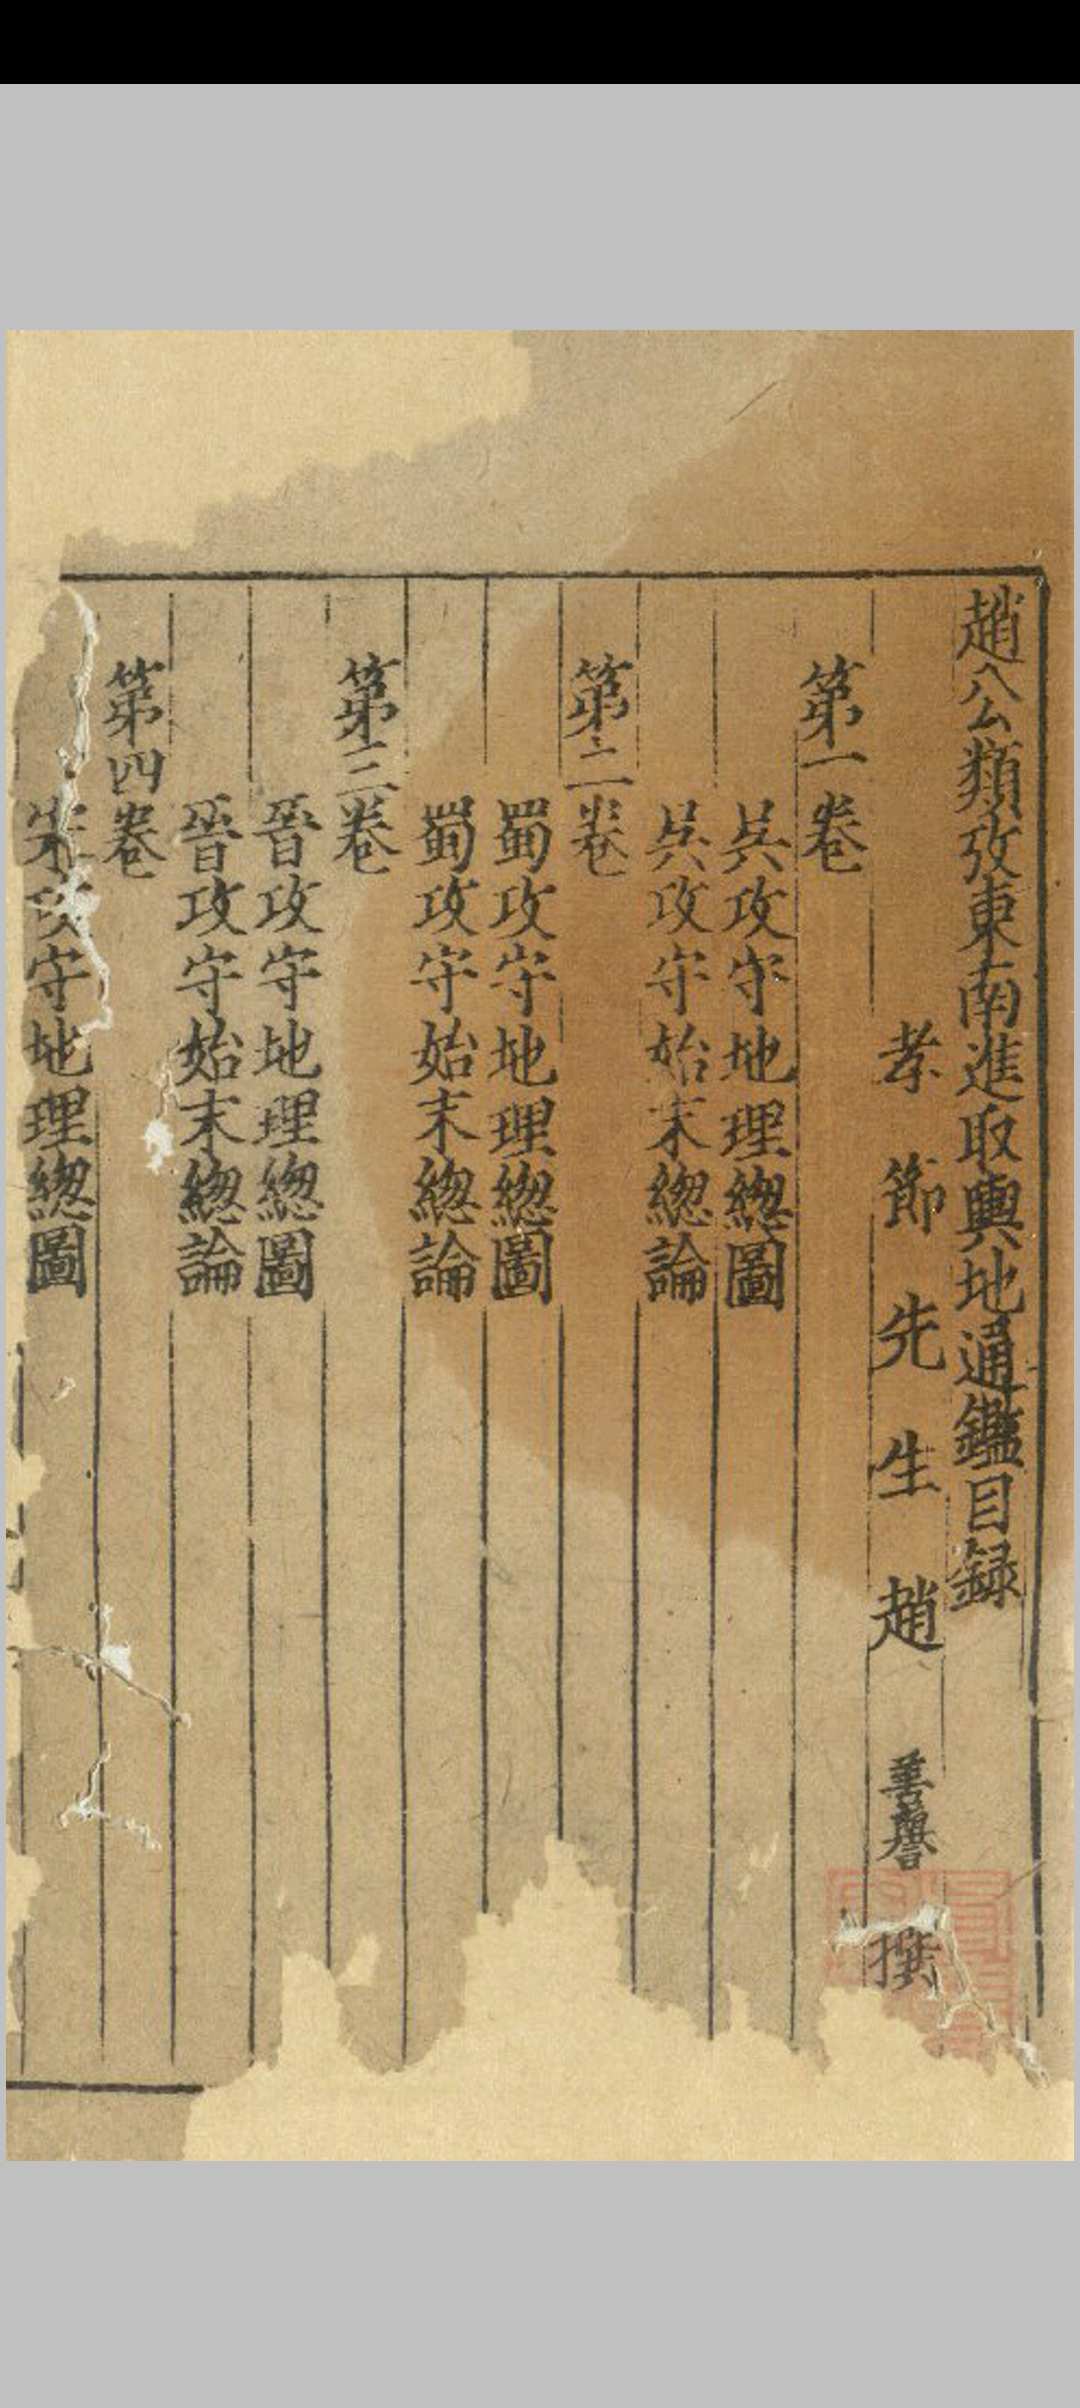 趙公類攷東南進取輿地通鑑目録
孝節先生趙善譽撰
第一卷
吳攻守地理緫圖
吳攻守始末緫論
第二卷
蜀攻守地理緫圖
蜀攻守始末緫論
第三卷
晉攻守地理緫圖
晉攻守始末緫論
第四卷
宋攻守地理緫圖